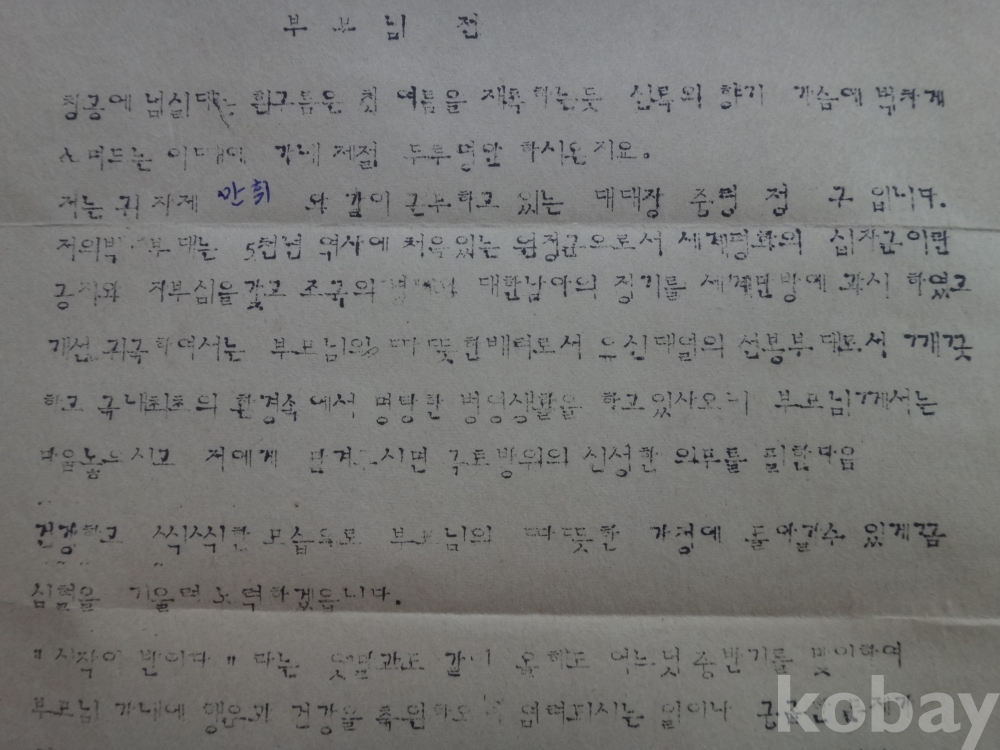 부 모 님 전
청공에 넘실대는 흰구름은 첫 여름을 재촉하는듯 신록의 향기 가슴에 벅차게
스며드는 이때에 가내 제절 두루평안 하시온지요.
저는 귀 자제 만휘 와 같이 근무하고 있는 대대장 중령 정 구 입니다.
저의 부대는 5천년 역사에 처음있는 원정군으로서 세계평화의 십자군이란
긍지와 자부심을 갖고 조국의 대한남아의 정기를 세계만방에 과시 하였고
개선 귀국하여서는 부모님의 따뜻한배려로서 유신대열의 선봉부대로서 깨끗
하고 국내최초의 환경속에서 명랑한 병영생활을 하고있사오니 부모님께서는
마음놓으시고 저에게 맡겨주시면 국토방위의 신성한 의무를 필한다음
건강하고 씩씩한 모습으로 부모님의 따뜻한 가정에 돌아갈수 있게끔
심혈을 기울려 노력하겠읍니다.
"시작이 반이다" 다는 옛말과도 같이 올해도 어느덧 중반기를 맞이하여
부모님 가내에 행운과 건강을 축원하오며 염려되시는 일이나 궁금한
kobay